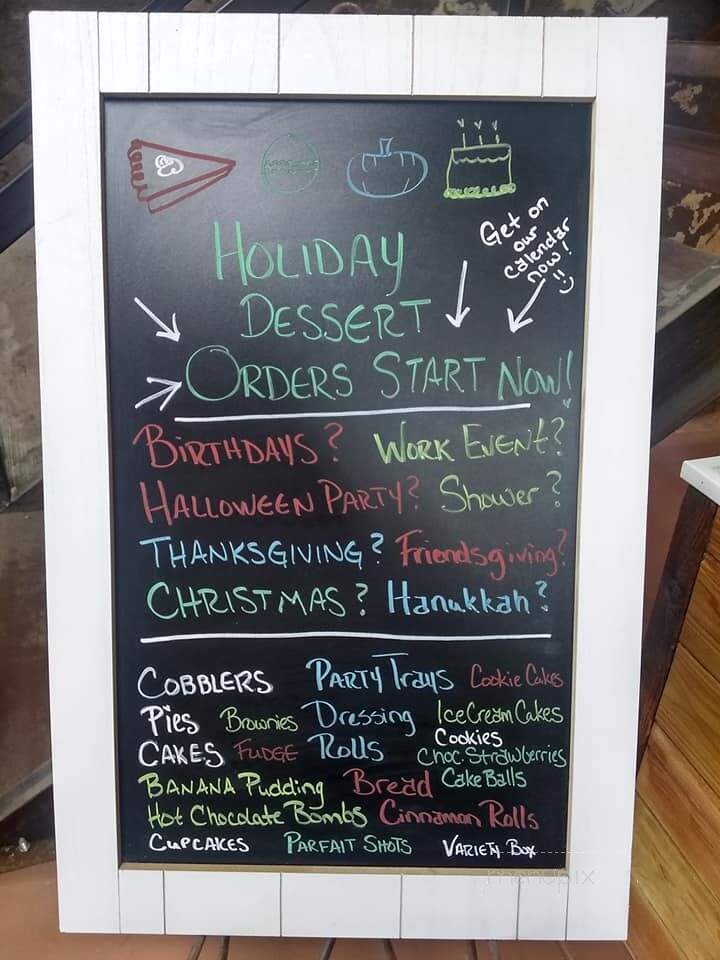 Get on
our
calendar
now!
HOLIDAY
DESSERT
ORDERS START NOW!
BIRTHDAYS? WORK EVENT?
HALLOWEEN PARTY? Shower?
THANKSGIVING? Friendsgiving?
CHRISTMAS? Hanukkah?
COBBLERS PARTY Trays Cookie Cakes
Pies Brownies Dressing Ice Cream Cakes
Cookies
CAKES FUDGE Rolls Choc. Strawberries
BANANA Pudding Bread Cake Balls
Hot Chocolate Bombs Cinnamon Rolls
CUPCAKES PARFAIT SHOTS VARIETY BOX
menupix